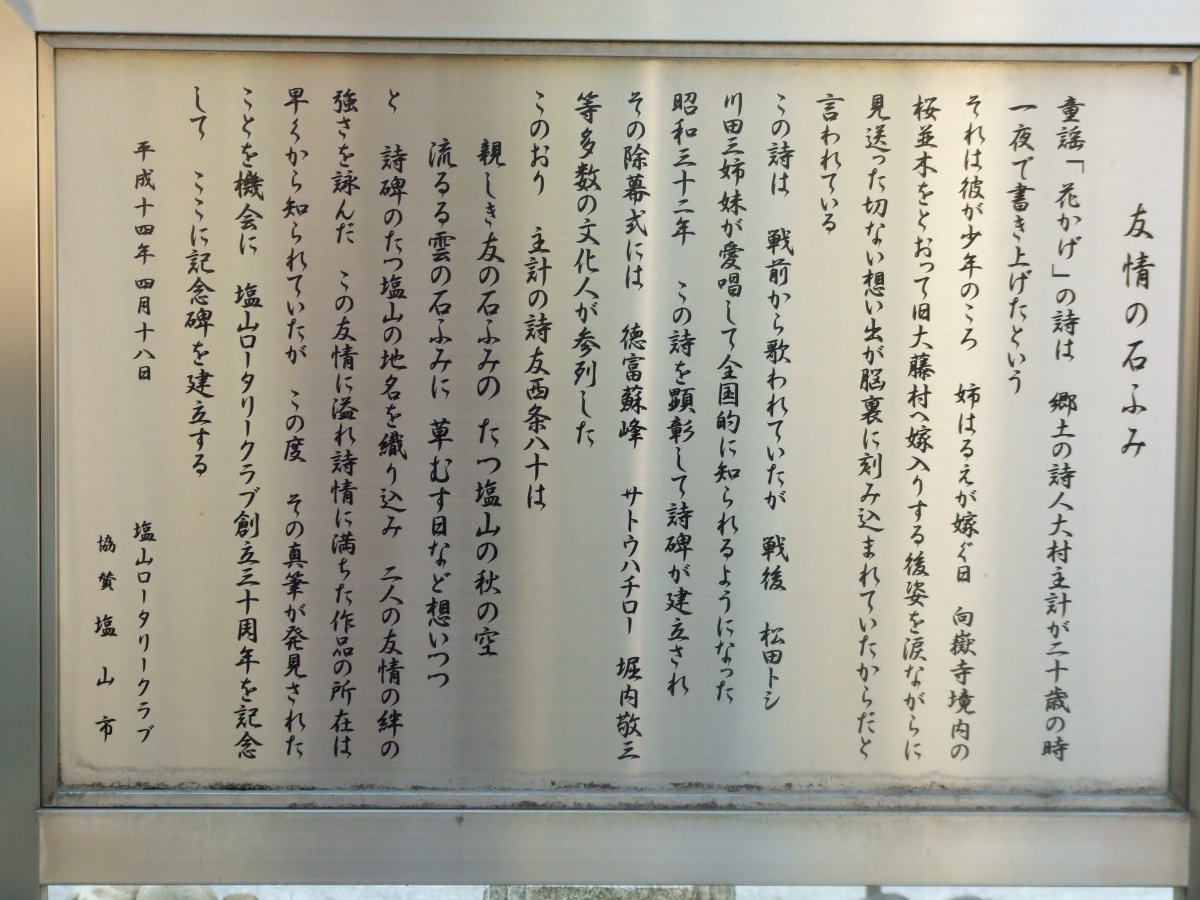 友情の石ふみ
童謡「花かげ」の詩は　郷土の詩人大村主計が二十歳の時
一夜で書き上げたという
それは彼が少年のころ　姉はるえが嫁ぐ日　向嶽寺境内の
桜並木をとおって旧大藤村へ嫁入りする後姿を涙ながらに
見送った切ない想い出が脳裏に刻み込まれていたからだと
言われている
この詩は　戦前から歌われていたが　戦後　松田トシ
川田三姉妹が愛唱して全国的に知られるようになった
昭和三十二年　この詩を顕彰して詩碑が建立され
その除幕式には　徳富蘇峰　サトウハチロー　堀内敬三
等多数の文化人が参列した
このおり　主計の詩友西条八十は
親しき友の石ふみの　たつ塩山の秋の空
流るる雲の石ふみに　草むす日など想いつつ
と　詩碑のたつ塩山の地名を織り込み　二人の友情の絆の
強さを詠んだ　この友情に溢れ詩情に満ちた作品の所在は
早くから知られていたが　この度　その真筆が発見された
ことを機会に　塩山ロータリークラブ創立三十周年を記念
して　ここに記念碑を建立する
平成十四年四月十八日
塩山ロータリークラブ
協賛　塩山市